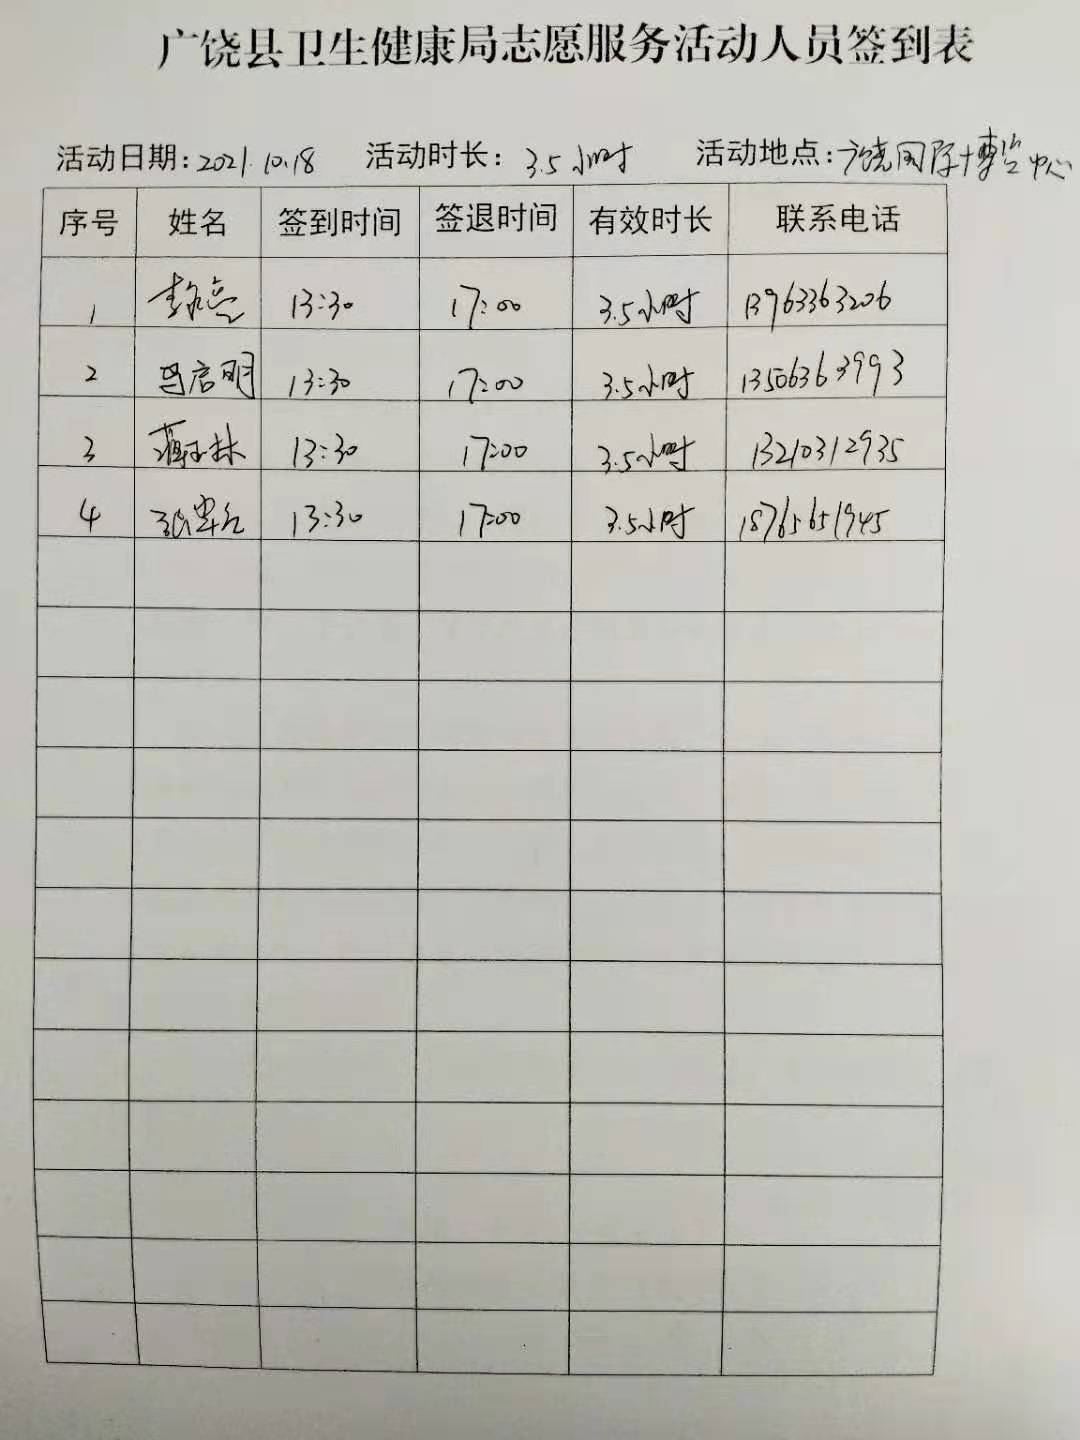 广饶县卫生健康局志愿服务活动人员签到表
活动日期:2021.10.18 活动时长:3.5小时 活动地点:广饶国际博览中心
序号 姓名 签到时间 签退时间 有效时长 联系电话
1 13:30 17:00 3.5小时 13963363206
2 启明 13:30 17:00 3.5小时 13506363993
3 蒋玉林 13:30 17:00 3.5小时 13210312935
4 13:30 17:00 3.5小时 18765651945